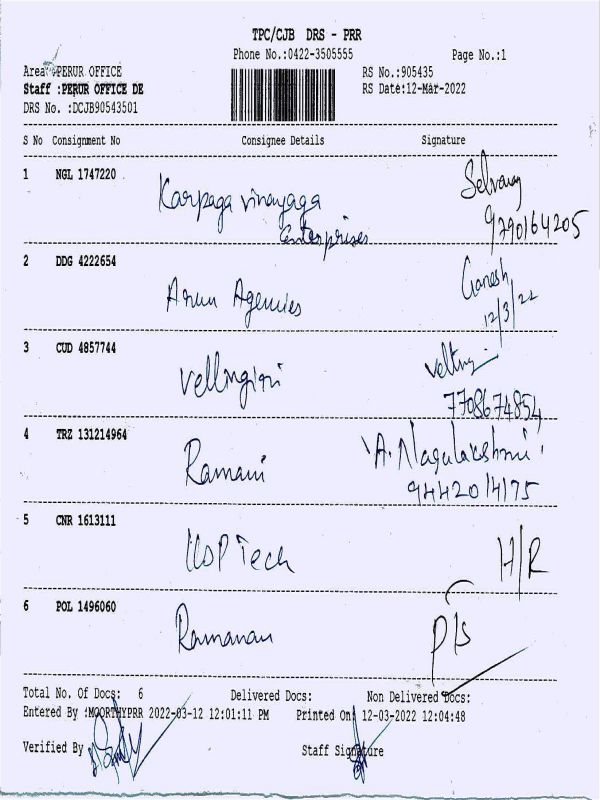 TPC/CJB DRS - PRR
Phone No.:0422-3505555 Page No.:1
Area :PERUR OFFICE RS No.:905435
Staff :PERUR OFFICE DE RS Date:12-Mar-2022
DRS No. :DCJB90543501
S No Consignment No Consignee Details Signature
1 NGL 1747220 Karpaga vinayaga Selvaraj
Enterprises 9790164205
2 DDG 4222654 Arun Agencies Ganesh
12/3/22
3 CUD 4857744 Vellingiri
7708674854
4 TRZ 131214964 Ramani A. Nagulakshmi
9442014175
5 CNR 1613111 Tech H/R
6 POL 1496060 Ramanan P/s
Total No. Of Docs: 6 Delivered Docs: Non Delivered Docs:
Entered By :MOORTHYPRR 2022-03-12 12:01:11 PM Printed On: 12-03-2022 12:04:48
Verified By Staff Signature